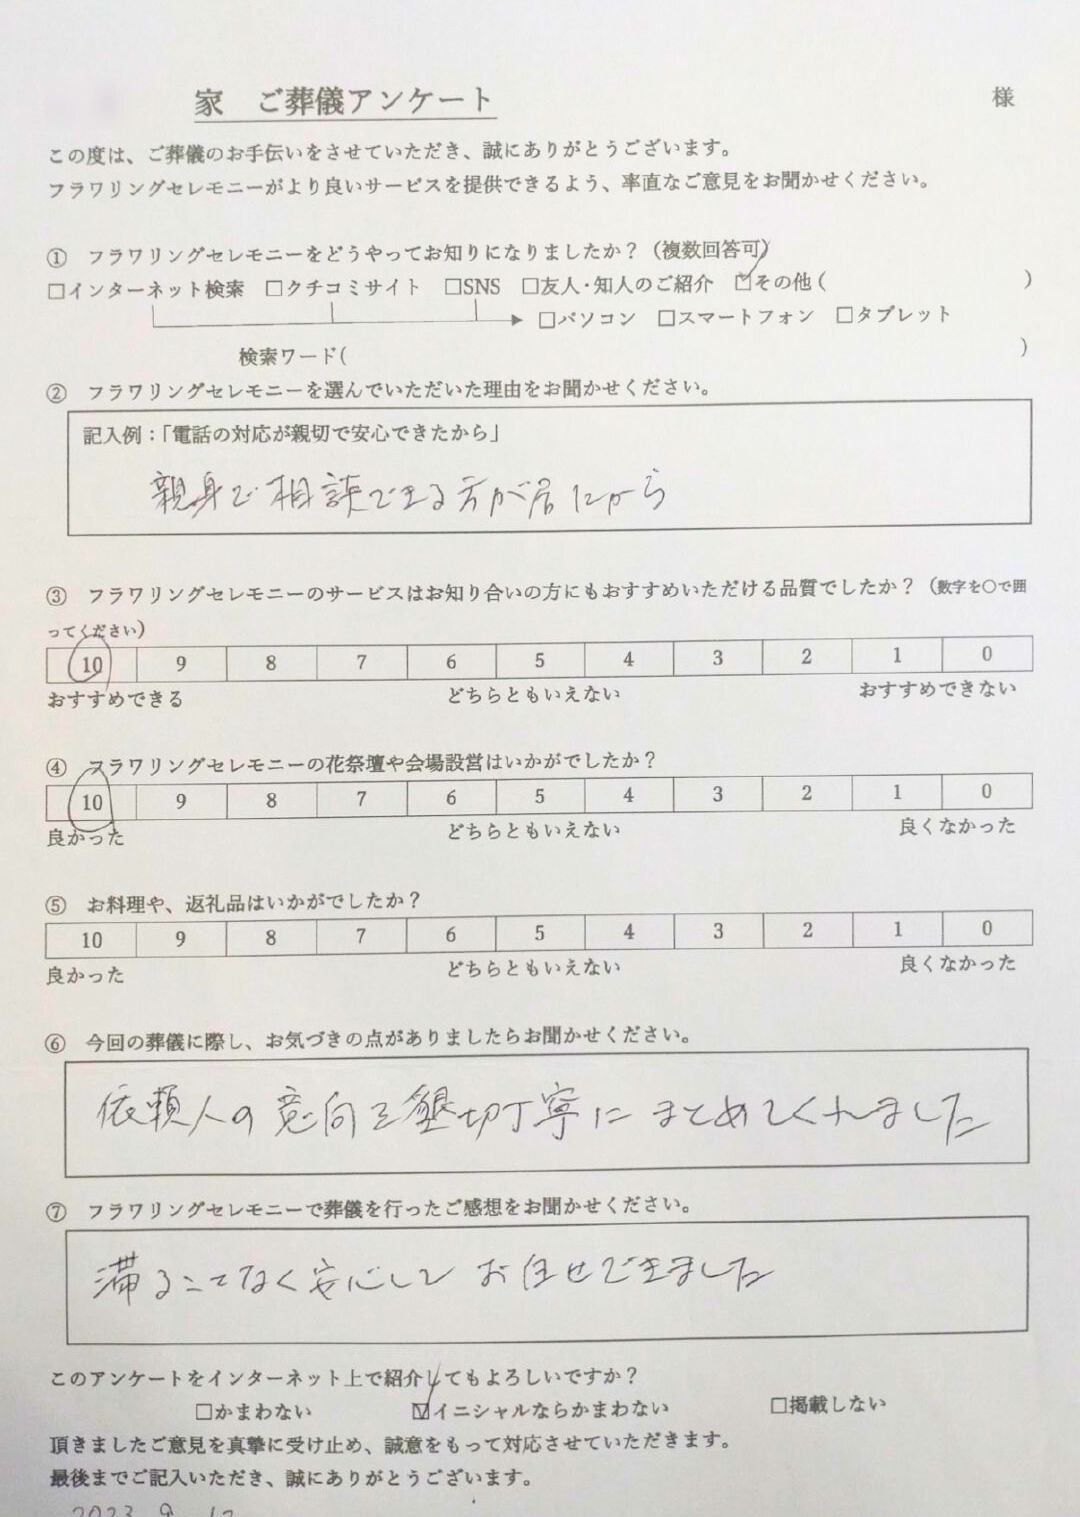 家　ご葬儀アンケート　様
この度は、ご葬儀のお手伝いをさせていただき、誠にありがとうございます。
フラワリングセレモニーがより良いサービスを提供できるよう、率直なご意見をお聞かせください。
① フラワリングセレモニーをどうやってお知りになりましたか？（複数回答可）
□インターネット検索 □クチコミサイト □SNS □友人・知人のご紹介 ☑その他（ ）
□パソコン □スマートフォン □タブレット
検索ワード( )
② フラワリングセレモニーを選んでいただいた理由をお聞かせください。
記入例：「電話の対応が親切で安心できたから」
親身で相談できる方が居たから
③ フラワリングセレモニーのサービスはお知り合いの方にもおすすめいただける品質でしたか？（数字を○で囲
ってください）
10 9 8 7 6 5 4 3 2 1 0
おすすめできる どちらともいえない おすすめできない
④ フラワリングセレモニーの花祭壇や会場設営はいかがでしたか？
10 9 8 7 6 5 4 3 2 1 0
良かった どちらともいえない 良くなかった
⑤ お料理や、返礼品はいかがでしたか？
10 9 8 7 6 5 4 3 2 1 0
良かった どちらともいえない 良くなかった
⑥ 今回の葬儀に際し、お気づきの点がありましたらお聞かせください。
依頼人の意向を懇切丁寧にまとめてくれました
⑦ フラワリングセレモニーで葬儀を行ったご感想をお聞かせください。
滞ることなく安心してお任せできました
このアンケートをインターネット上で紹介してもよろしいですか？
□かまわない ☑イニシャルならかまわない □掲載しない
頂きましたご意見を真摯に受け止め、誠意をもって対応させていただきます。
最後までご記入いただき、誠にありがとうございます。
2023 9